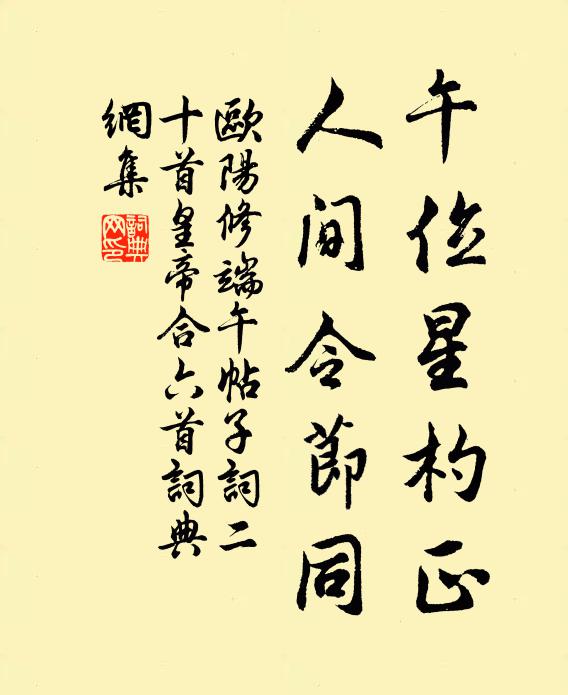 午位星杓正
人间令節同
歐陽修端午帖子詞二
十首皇帝合六首詞典
網集
詞典
网印